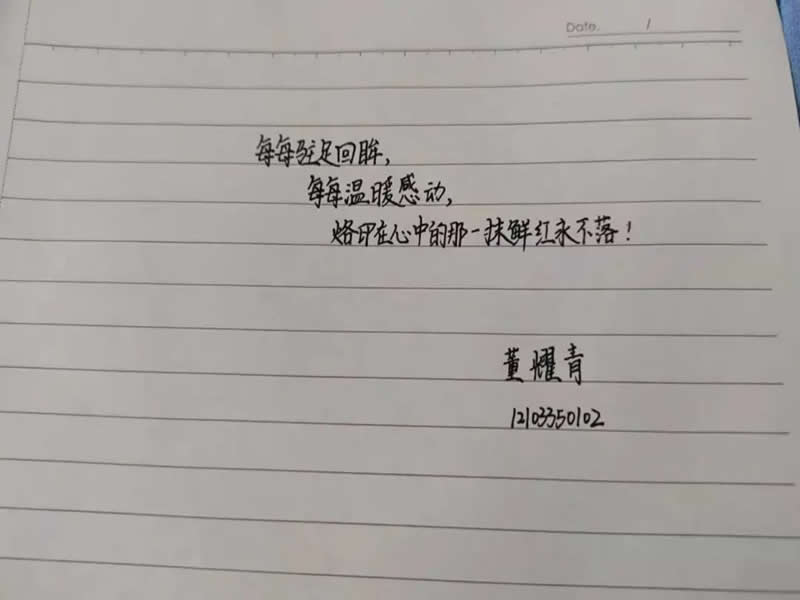 Date. /
每每驻足回眸,
每每温暖感动,
烙印在心中的那一抹鲜红永不落!
董耀青
12103350102